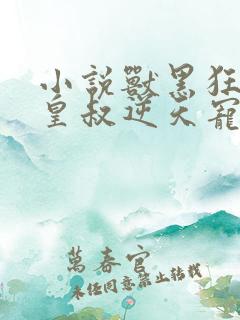 小說獸黑狂
皇叔逆天寵
萬春官
未任同意禁止转载